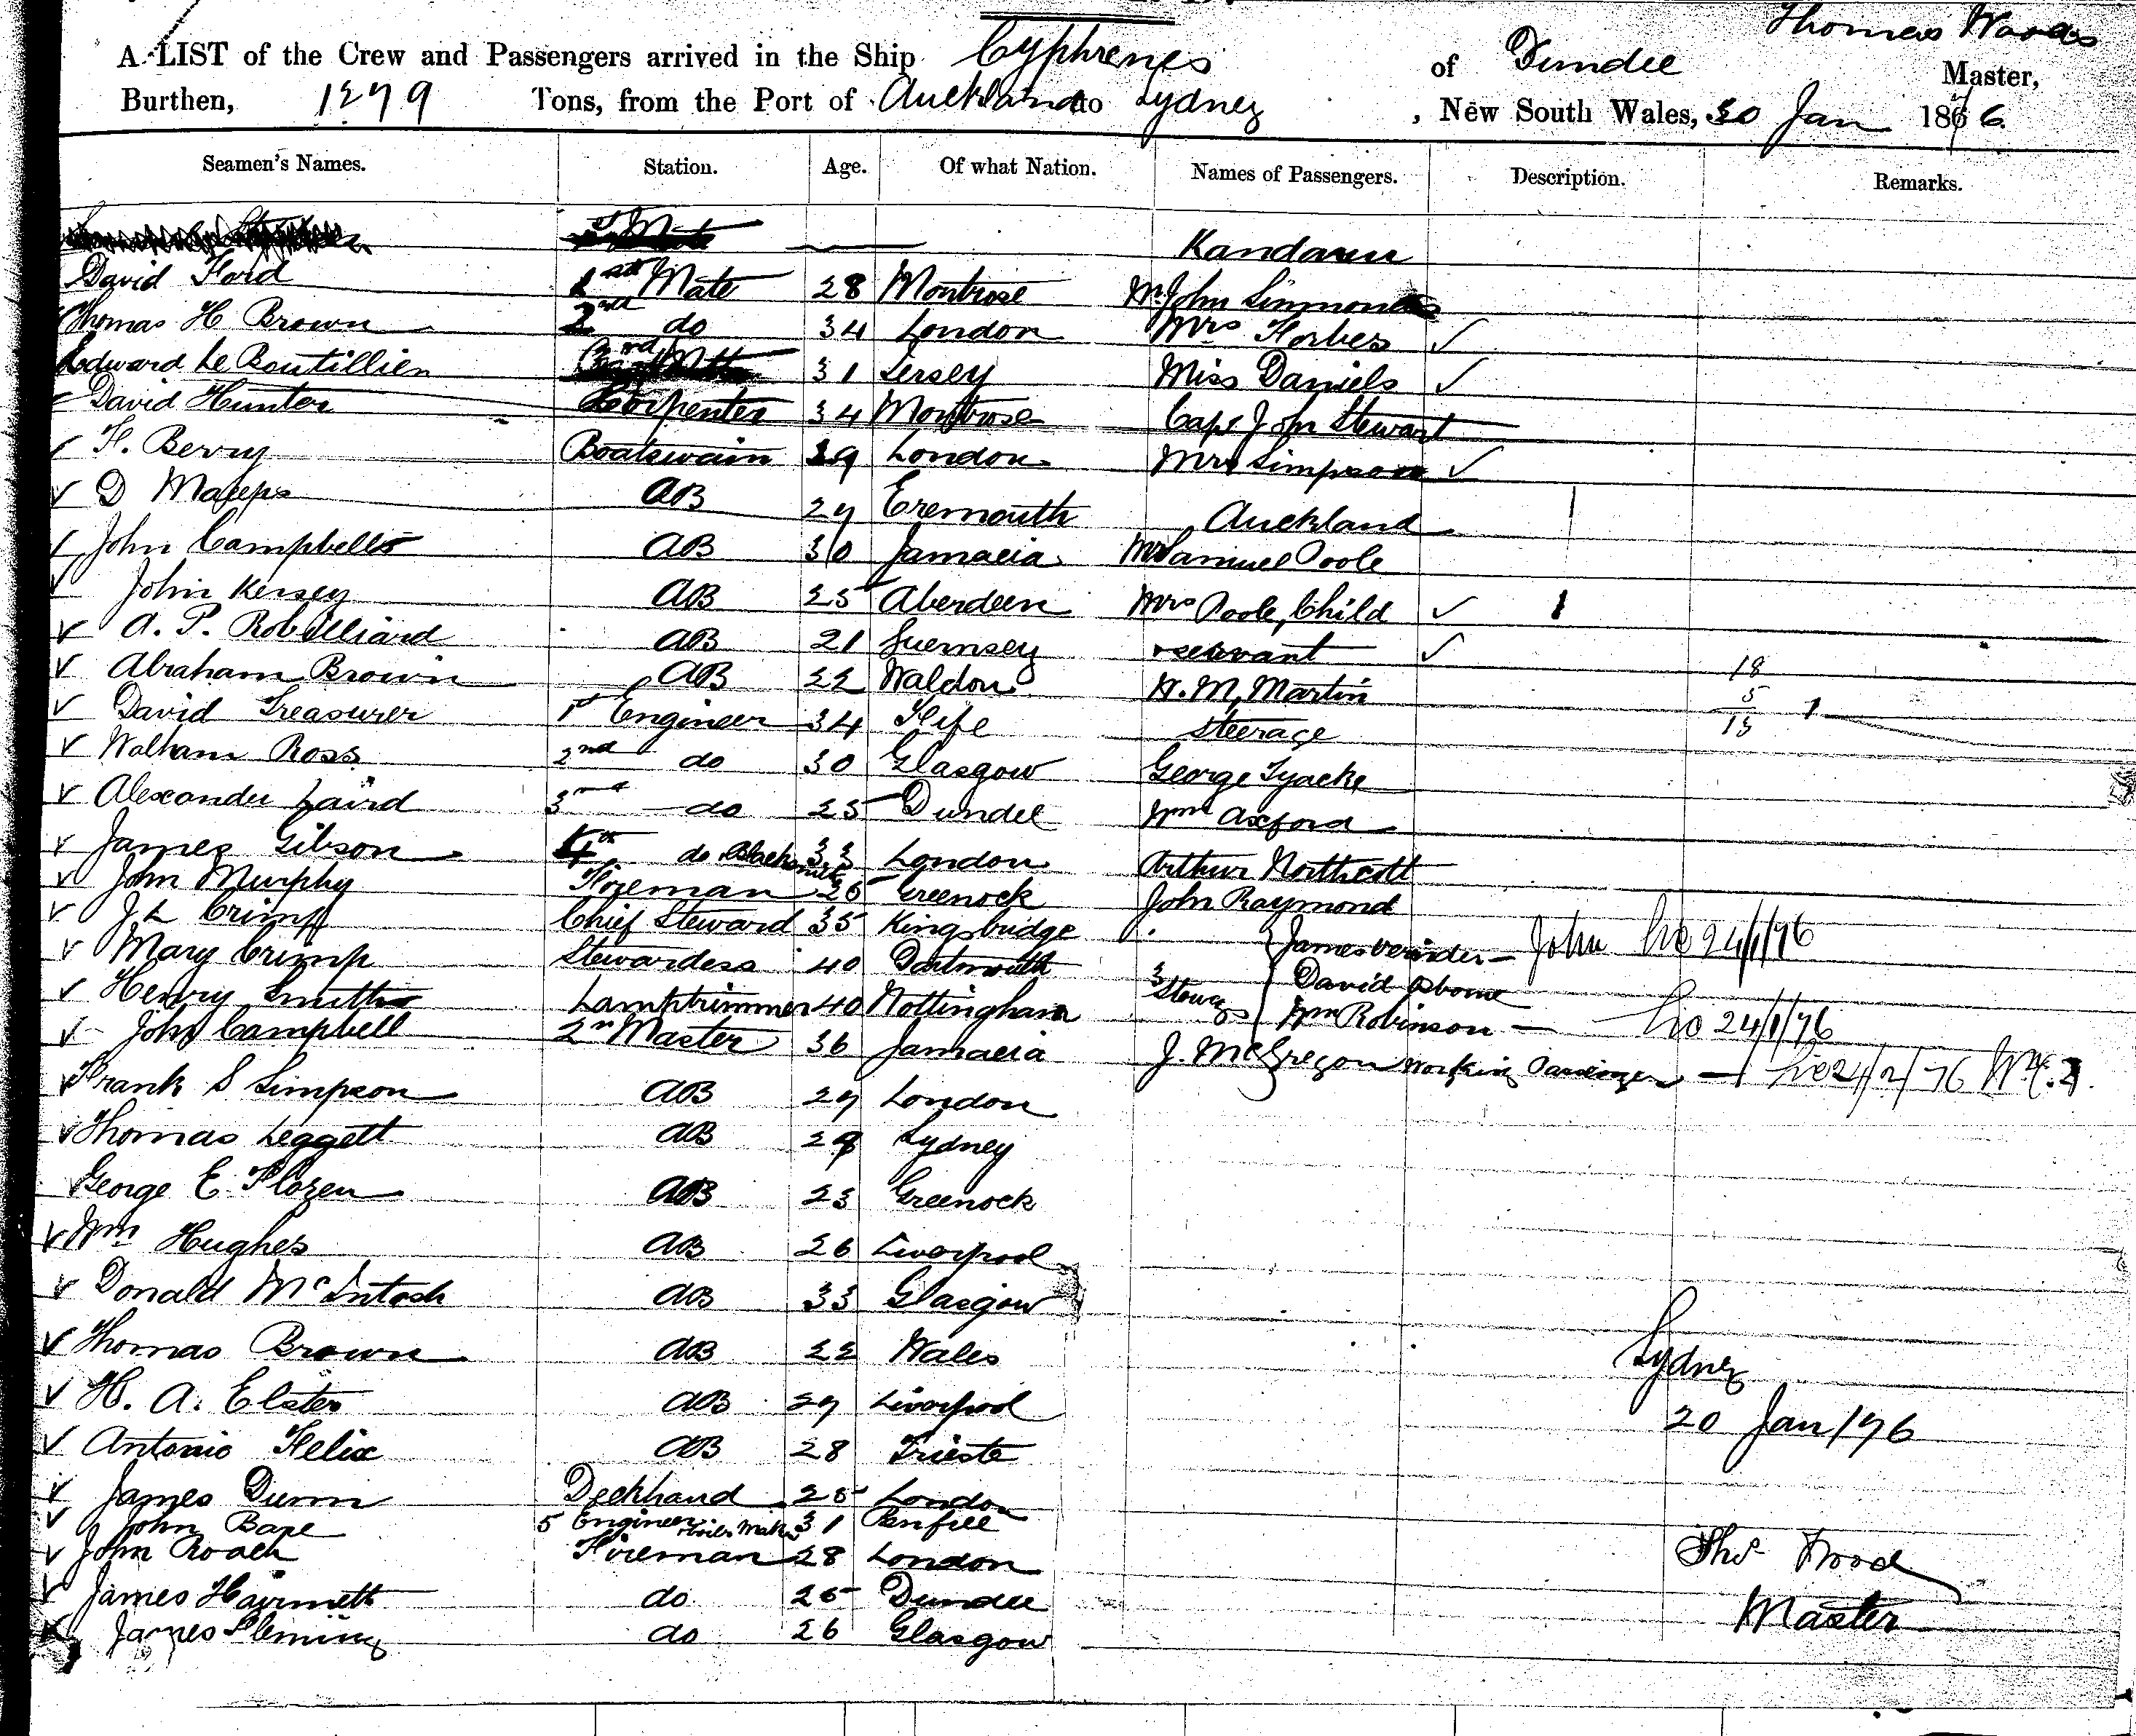 Thomas Woods
A LIST of the Crew and Passengers arrived in the Ship Cyphrenes of Dundee Master,
Burthen, 1279 Tons, from the Port of Auckland to Sydney , New South Wales, 30 Jan 1876
Seamen's Names. Station. Age. Of what Nation. Names of Passengers. Description. Remarks.
Kandavu
David Ford 1st Mate 28 Montrose Mr John Simmonds
Thomas H Brown 2nd do 34 London Mrs Forbes ✓
Edward Le Boutillier 3rd 31 Jersey Miss Daniels ✓
David Hunter Carpenter 34 Montrose Capt John Stewart
F. Berry Boatswain 29 London Mrs Simpson ✓
D AB 29 Auckland
John Campbell AB 30 Jamacia Mr Samuel Poole
John Kersey AB 25 Aberdeen Mrs Poole, Child ✓
A. P. Robilliard AB 21 Guernsey servant ✓
Abraham Brown AB 22 Maldon H. M. Martin 18
David Treasurer 1st Engineer 34 Fife Steerage 5
13
Ross 2nd do 30 Glasgow George Tyacke
Alexander Laird 3rd do 25 Dundee Wm Axford
James Gibson 4th do Blacksmith 33 London Arthur Northcott
John Murphy Foreman 25 Greenock John Raymond
J L Crimp Chief Steward 35 Kingsbridge James Verinder – John 24/1/76
Mary Crimp Stewardess 40 Dartmouth 3 David Osborne
Henry Smith Lamptrimmer 40 Nottingham Stowys Wm Robinson – 24/1/76
John Campbell 2nd Master 36 Jamacia J. McGregor Working Passenger – 24/2/76
Frank S Simpson AB 29 London
Thomas Leggett AB 29 Sydney
George E. AB 23 Greenock
Wm Hughes AB 26 Liverpool
Donald McIntosh AB 33 Glasgow
Thomas Brown AB 22 Wales Sydney
H. A. Elster AB 29 Liverpool 20 Jan/76
Antonio Felix AB 28 Trieste
James Dunn Deckhand 25 London
John Bare 5 Engineer 31
John Roach Fireman 28 London Thos Wood
James do 25 Dundee Master
James Fleming do 26 Glasgow